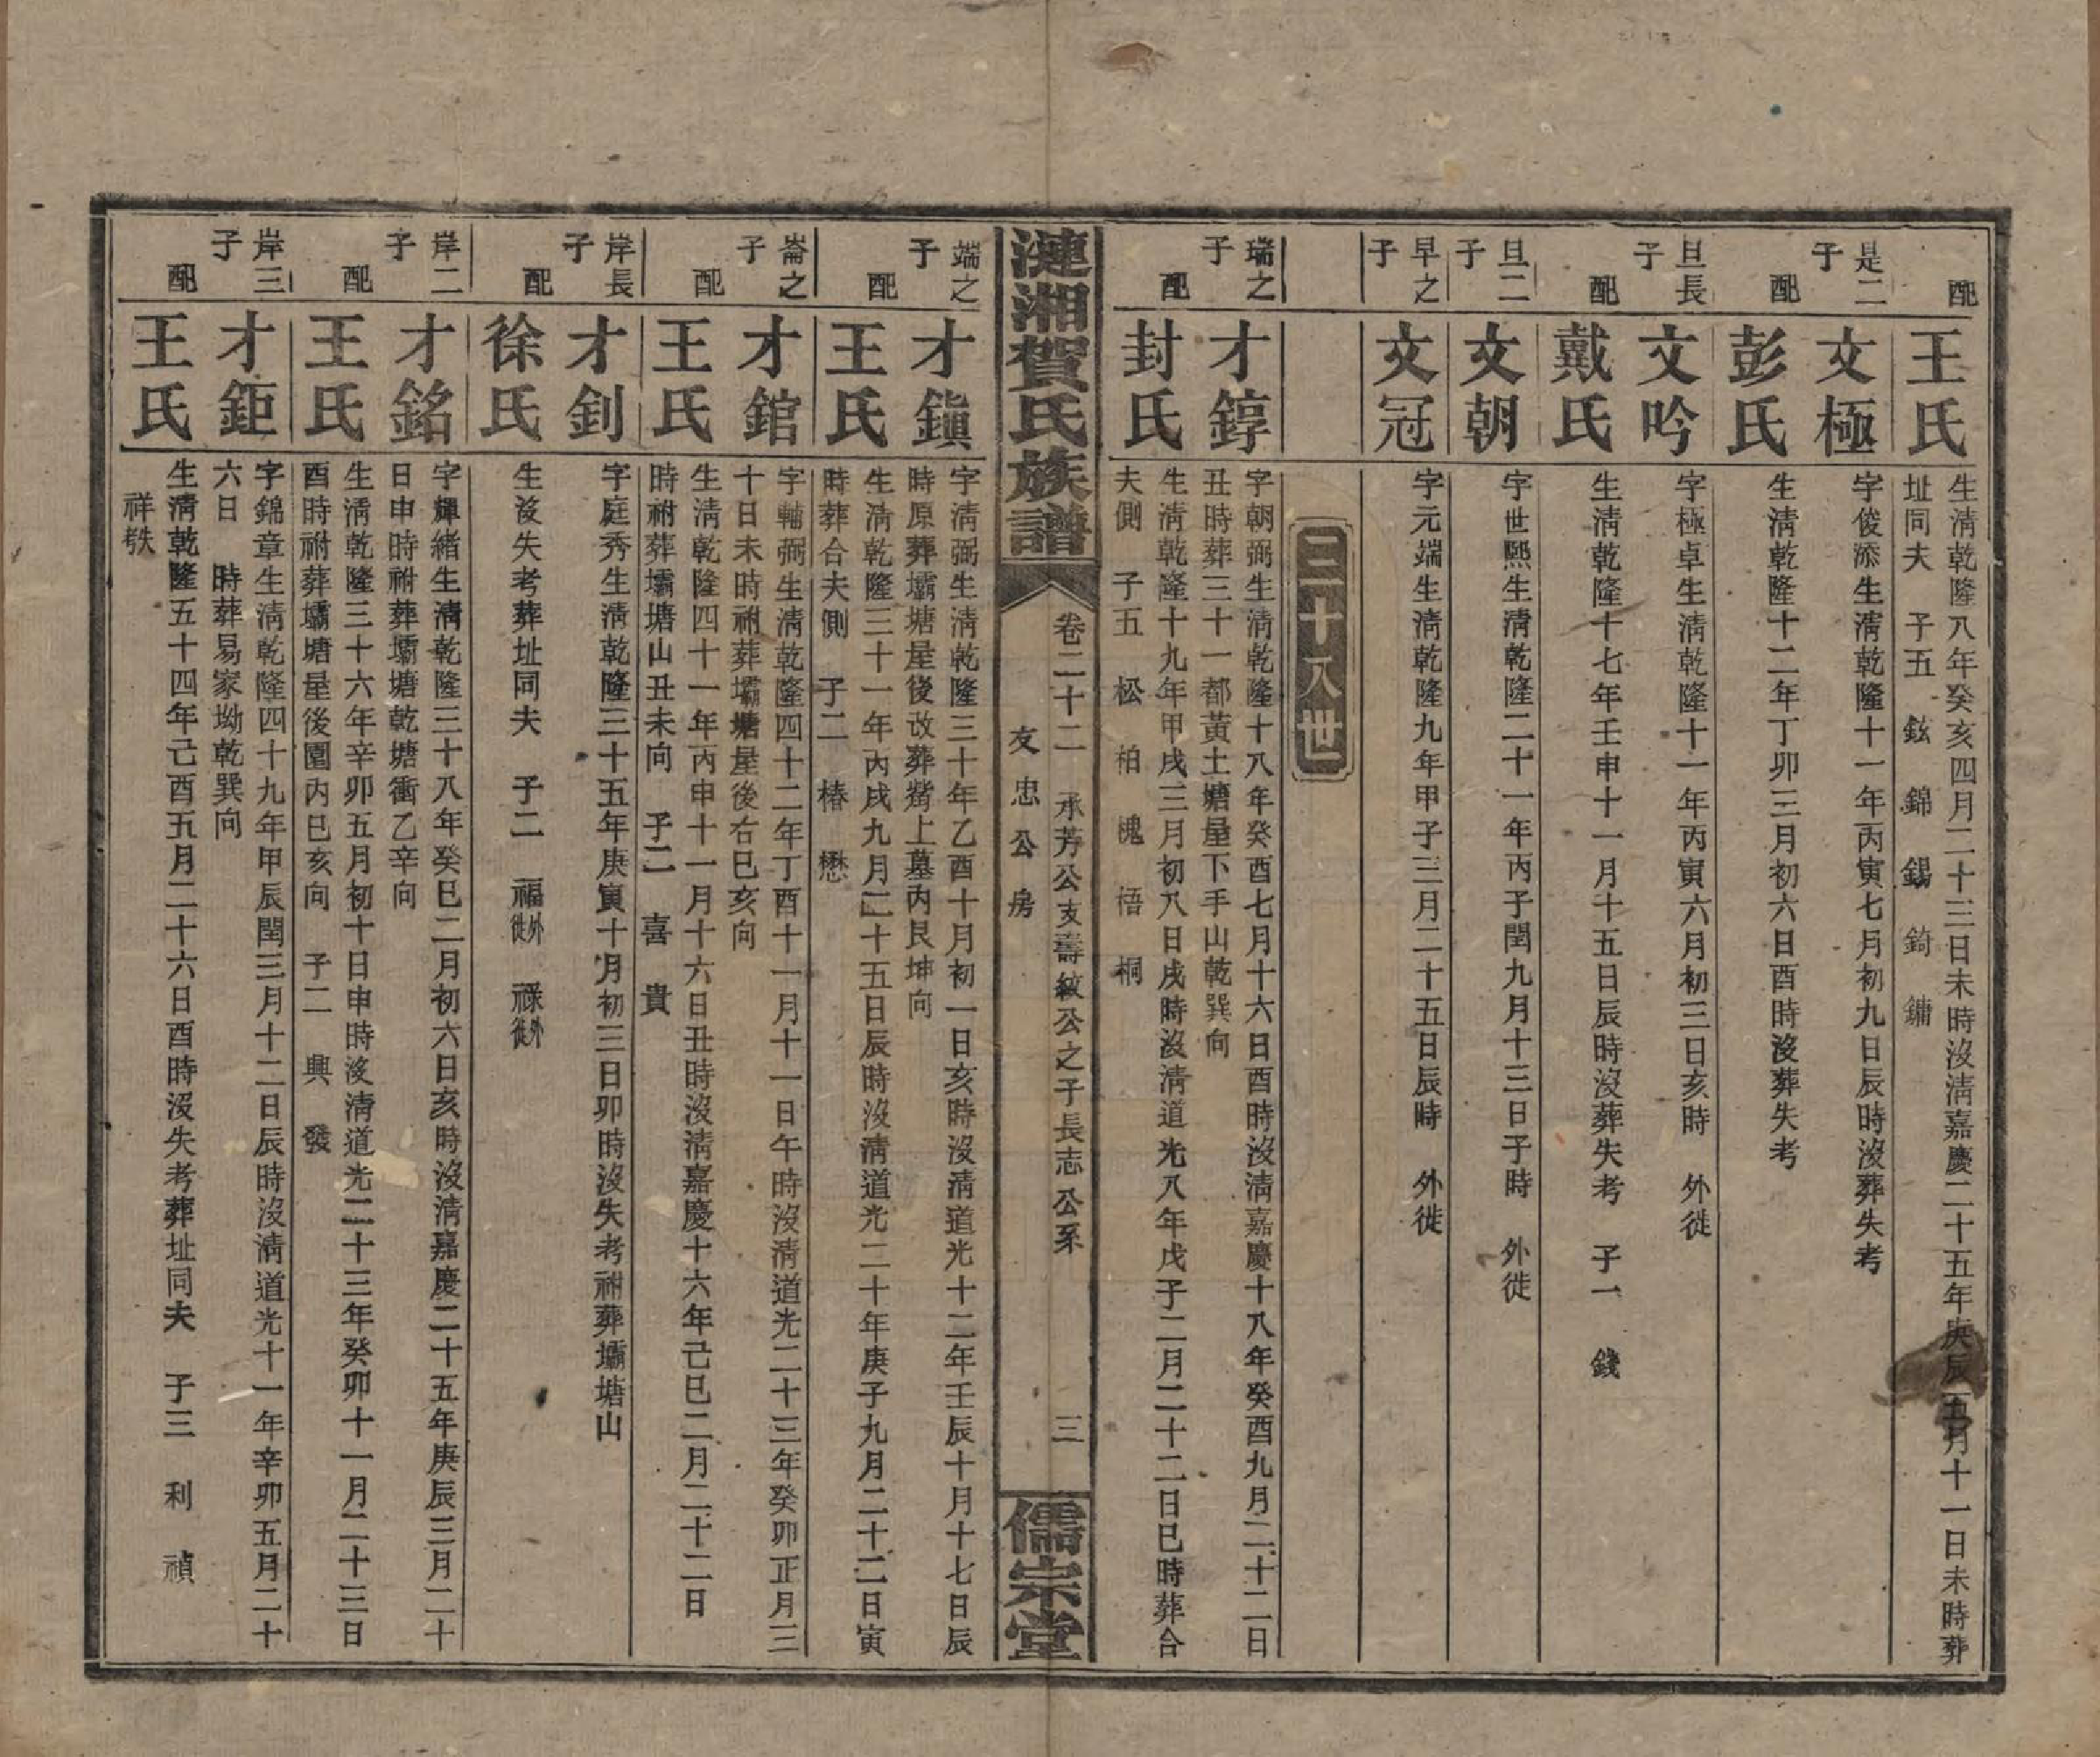 配 王氏
生清乾隆八年癸亥四月二十三日未時沒清嘉慶二十五年庚辰五月十一日未時葬
址同夫 子五 鉉 錦 錫 錡 鏞
是二子 文極
字俊添生清乾隆十一年丙寅七月初九日辰時沒葬失考
配 彭氏
生清乾隆十二年丁卯三月初六日酉時沒葬失考
旦長子 文吟
字極卓生清乾隆十一年丙寅六月初三日亥時 外徙
配 戴氏
生清乾隆十七年壬申十一月十五日辰時沒葬失考 子一 錢
旦二子 文朝
字世熙生清乾隆二十一年丙子閏九月十三日子時 外徙
早之子 文冠
字元端生清乾隆九年甲子三月二十五日辰時 外徙
三十八世
瑞之子 才錞
字朝弼生清乾隆十八年癸酉七月十六日酉時沒清嘉慶十八年癸酉九月二十二日
丑時葬三十一都黃土塘屋下手山乾巽向
配 封氏
生清乾隆十九年甲戌三月初八日戌時沒清道光八年戊子二月二十二日巳時葬合
夫側 子五 松 柏 槐 梧 桐
漣湘賀氏族譜
卷二十二 承芳公支壽紋公之子長志公系 三
友忠公房
儒宗堂
端之子 才鎮
字清弼生清乾隆三十年乙酉十月初一日亥時沒清道光十二年壬辰十月十七日辰
時原葬壩塘屋後改葬嶺上墓內艮坤向
配 王氏
生清乾隆三十一年丙戌九月二十五日辰時沒清道光二十年庚子九月二十二日寅
時葬合夫側 子二 椿 懋
崙之子 才錧
字輔弼生清乾隆四十二年丁酉十一月十一日午時沒清道光二十三年癸卯正月三
十日未時祔葬壩塘屋後右巳亥向
配 王氏
生清乾隆四十一年丙申十一月十六日丑時沒清嘉慶十六年己巳二月二十二日
時祔葬壩塘山丑未向 子二 喜 貴
岸長子 才釗
字庭秀生清乾隆三十五年庚寅十月初三日卯時沒失考祔葬壩塘山
配 徐氏
生沒失考葬址同夫 子二 福外徙 祿外徙
岸二子 才銘
字輝緒生清乾隆三十八年癸巳二月初六日亥時沒清嘉慶二十五年庚辰三月二十
日申時祔葬壩塘乾塘衝乙辛向
配 王氏
生清乾隆三十六年辛卯五月初十日申時沒清道光二十三年癸卯十一月二十三日
酉時祔葬壩塘屋後園內巳亥向 子二 興 發
岸三子 才鉅
字錦章生清乾隆四十九年甲辰閏三月十二日辰時沒清道光十一年辛卯五月二十
六日 時葬易家坳乾巽向
配 王氏
生清乾隆五十四年己酉五月二十六日酉時沒失考葬址同夫 子三 利 禎
祥